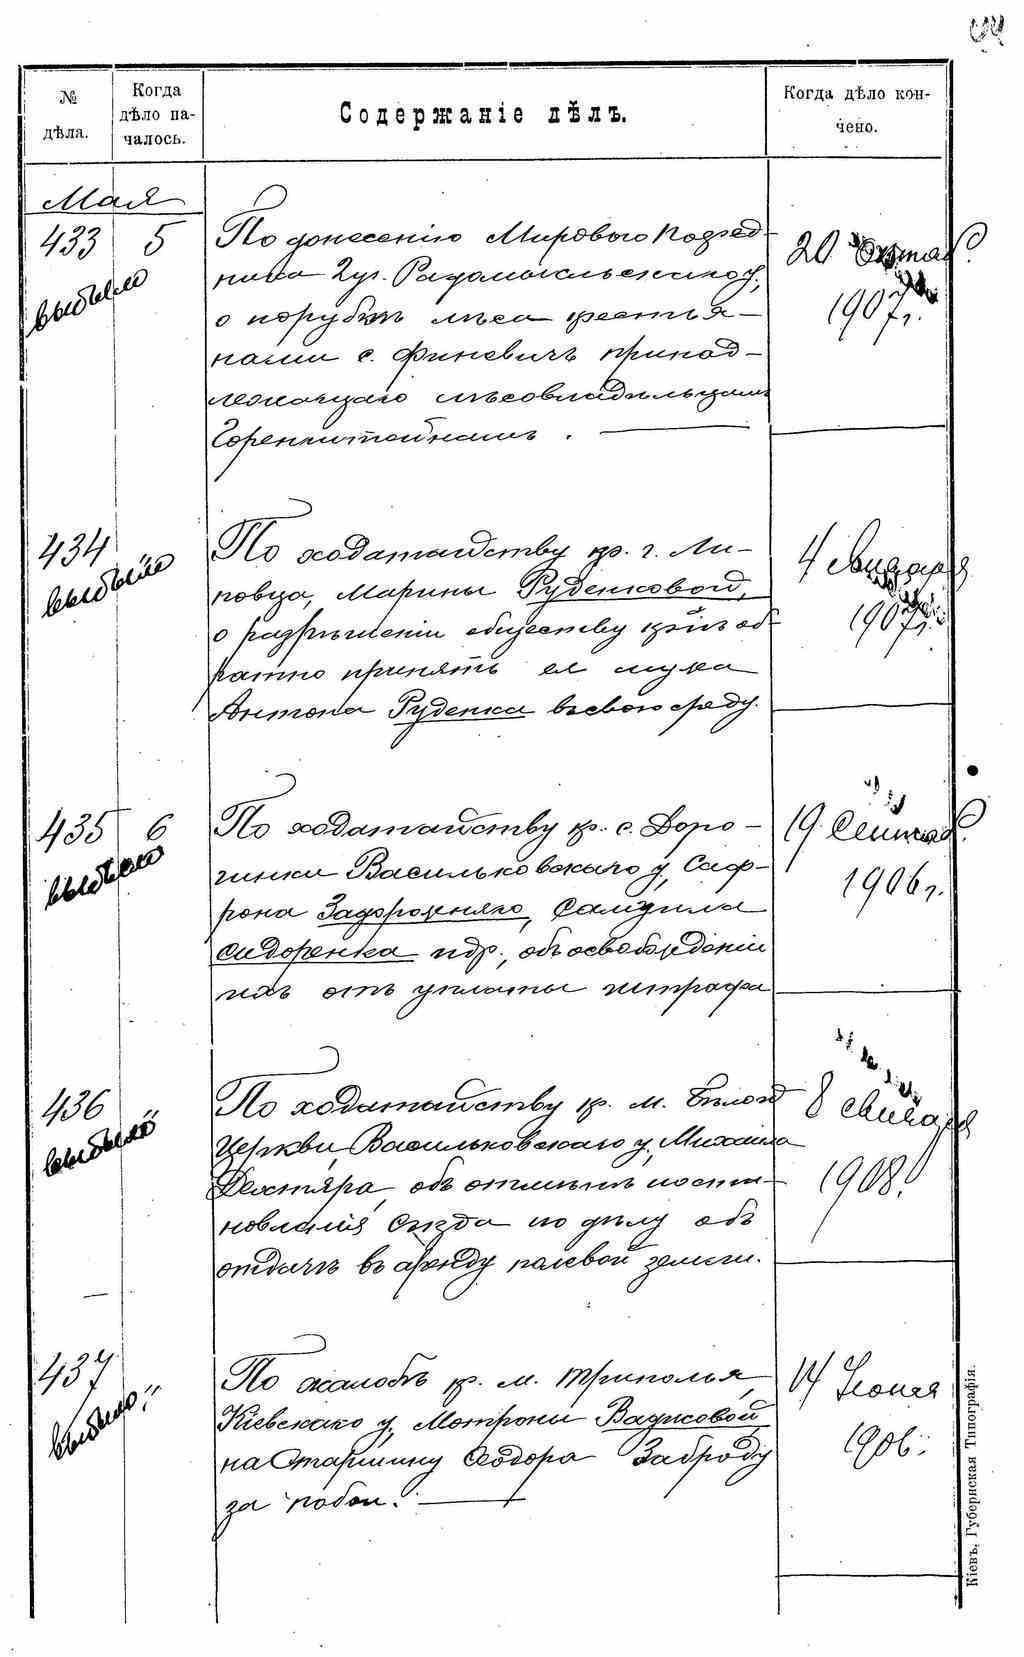 № дѣла.
Когда дѣло на-
чалось.
Содержаніе дѣлъ.
Когда дѣло кон-
чено.
Мая
433 5
выбыло
По донесенію Мироваго Посред-
ника 2 уч. Радомысльскаго у.,
о порубкѣ лѣса крестья-
нами с. Финевичъ принад-
лежащаго лѣсовладѣльцамъ
Горенштейнамъ.
20 Октяб.
1907 г.
434 "
выбыло
По ходатайству кр. г. Ли-
повца, Марины Руденковой,
о разрѣшеніи обществу кр-нъ об-
ратно принять ея мужа
Антона Руденка въ свою среду.
4 Января
1907 г.
435 6
выбыло
По ходатайству кр. с. Доро-
гинки Васильковскаго у., Саф-
рона Задорожняго, Самуила
Сидоренка и др., объ освобожденіи
ихъ отъ уплаты штрафа
19 Сентяб.
1906 г.
436 "
выбыло
По ходатайству кр. м. Бѣлой
Церкви, Васильковскаго у., Михаила
Дехтяра, объ отмѣнѣ поста-
новленія Съѣзда по дѣлу объ
отдачѣ въ аренду полевой земли.
8 Января
1908.
437 "
выбыло
По жалобѣ кр. м. Триполья,
Кіевскаго у., Мотроны
на Старшину Ѳеодора Заброду
за побои.
14 Іюня
1906.
Кіевъ, Губернская Типографія.